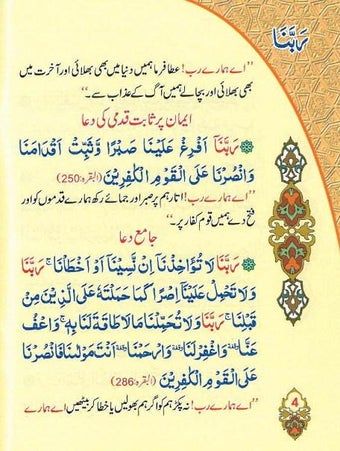 رَبَّنَا
”اے ہمارے رب! عطا فرما ہمیں دنیا میں بھی بھلائی اور آخرت میں
بھی بھلائی اور بچا لے ہمیں آگ کے عذاب سے۔“
ایمان پر ثابت قدمی کی دعا
رَبَّنَاۤ اَفْرِغْ عَلَیْنَا صَبْرًا وَّثَبِّتْ اَقْدَامَنَا
وَانْصُرْنَا عَلَی الْقَوْمِ الْكٰفِرِیْنَ (البقرہ:250)
”اے ہمارے رب! اتار ہم پر صبر اور جمائے رکھ ہمارے قدموں کو اور
فتح دے ہمیں قوم کفار پر۔“
جامع دعا
رَبَّنَا لَا تُؤَاخِذْنَاۤ اِنْ نَّسِیْنَاۤ اَوْ اَخْطَاْنَا ۚ رَبَّنَا
وَلَا تَحْمِلْ عَلَیْنَاۤ اِصْرًا كَمَا حَمَلْتَهٗ عَلَی الَّذِیْنَ مِنْ
قَبْلِنَا ۚ رَبَّنَا وَلَا تُحَمِّلْنَا مَا لَا طَاقَةَ لَنَا بِهٖ ۚ وَاعْفُ
عَنَّا ٝ وَاغْفِرْ لَنَا ٝ وَارْحَمْنَا ٝ اَنْتَ مَوْلٰىنَا فَانْصُرْنَا
عَلَی الْقَوْمِ الْكٰفِرِیْنَ (البقرہ:286)
”اے ہمارے رب! نہ پکڑ ہم کو اگر ہم بھولیں یا خطا کر بیٹھیں اے ہمارے
4